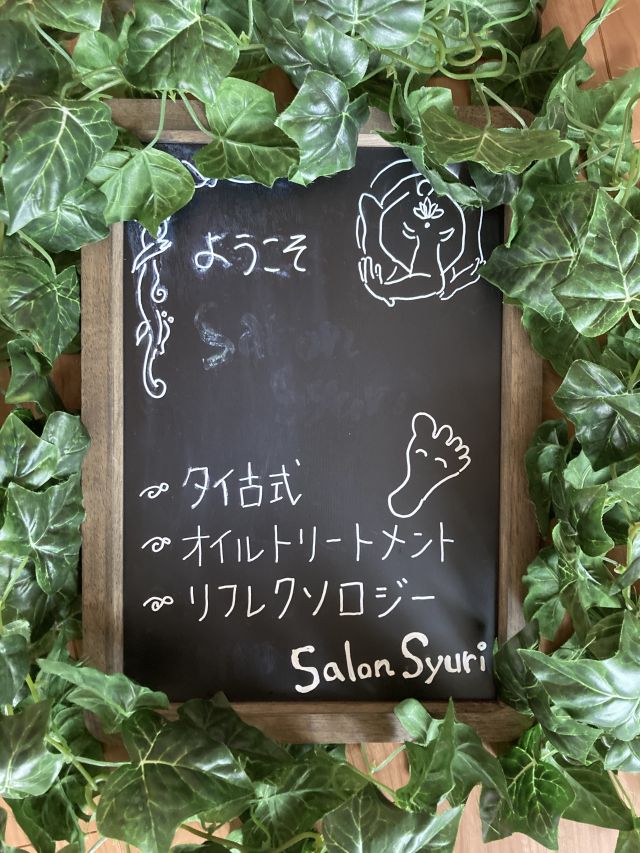 ようこそ
タイ古式
オイルトリートメント
リフレクソロジー
Salon Syuri